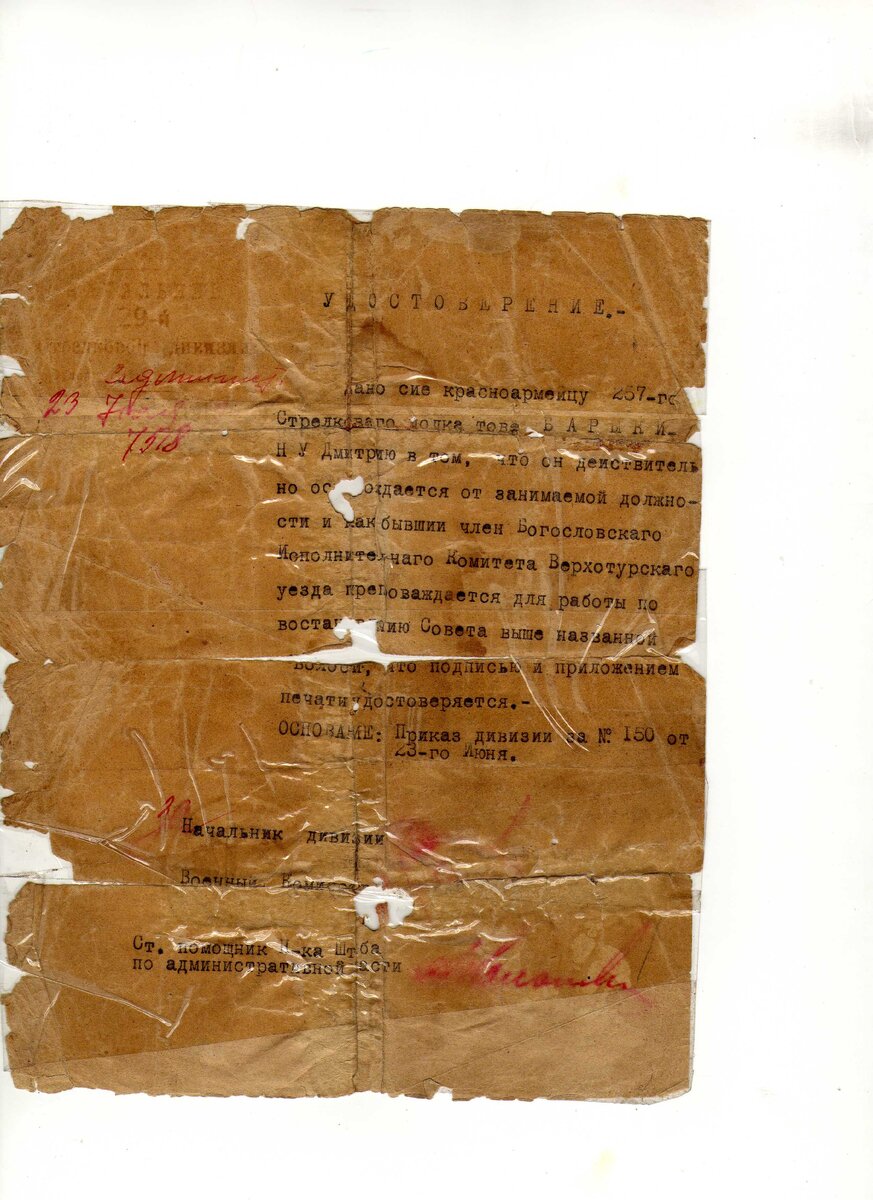 УДОСТОВЕРЕНИЕ.-
23
7518
Дано сие красноармейцу 257-го
Стрелковаго полка това БАРЫКИ-
НУ Дмитрию в том, что он действитель
но ос ождается от занимаемой должно-
сти и как бывшии член Богословскаго
Исполнителнаго Комитета Верхотурскаго
уезда препоаждается для работы по
воста ию Совета выше названной
волоси, что подписью и приложением
печати удостоверяется.-
ОСНОВАНИЕ: Приказ дивизии за № 150 от
23-го Июня.
Начальник дивизии
Военный Комисса
Ст. помощник Н-ка Штба
по административной части